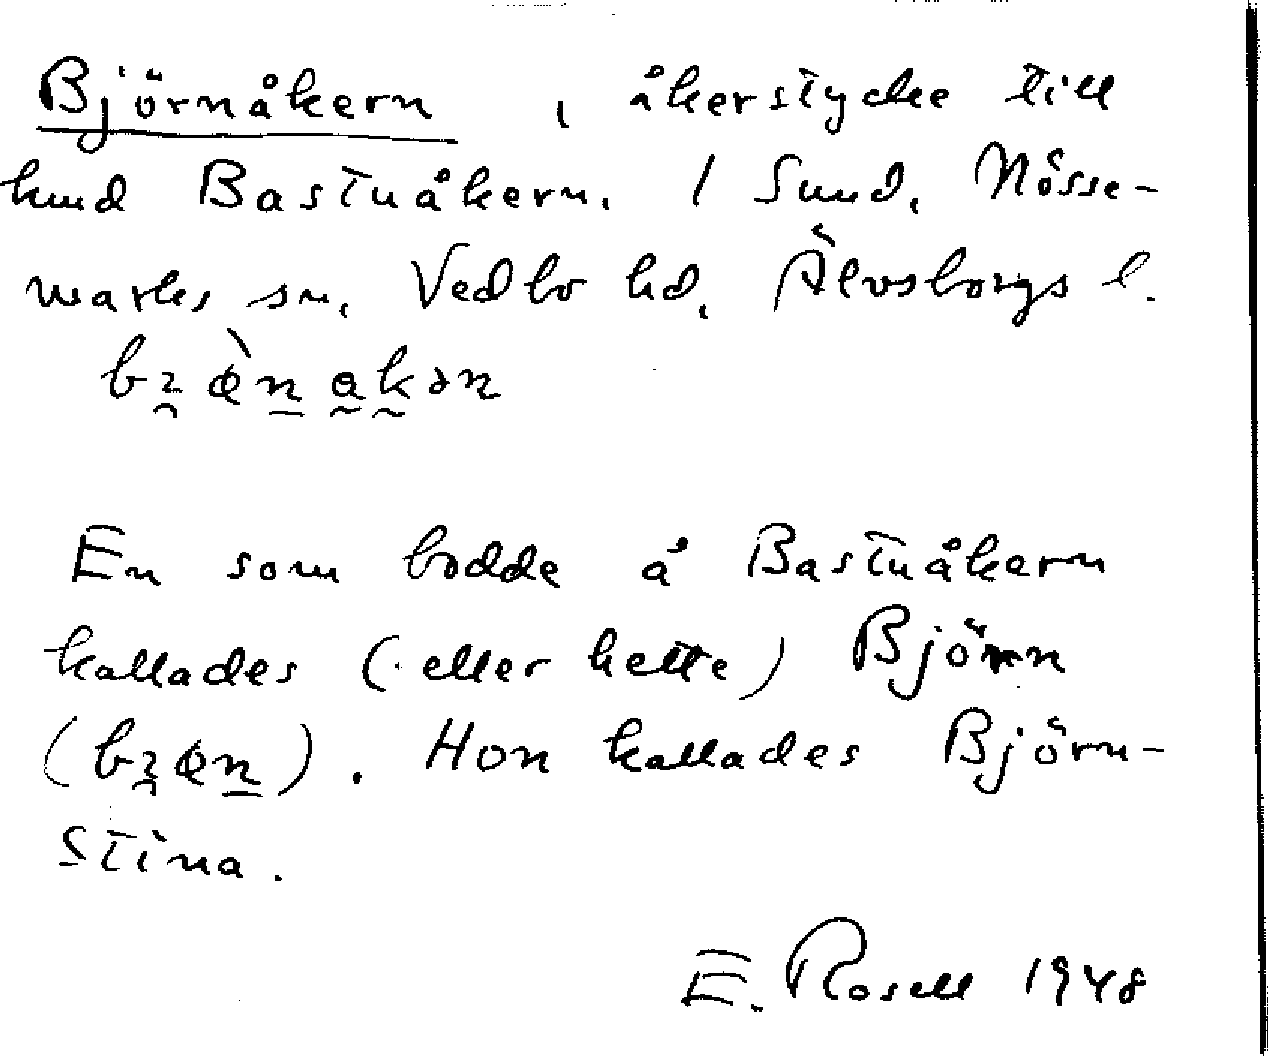 Björnåkern, åkerstycke till
hmd Bastuåkern. I Sund, Nösse-
marks sn, Vedbo hd, Älvsborgs l.
En som bodde å Bastuåkern
kallades (eller hette) Björn
Hon kallades Björn-
Stina.
E. Rosell 1948